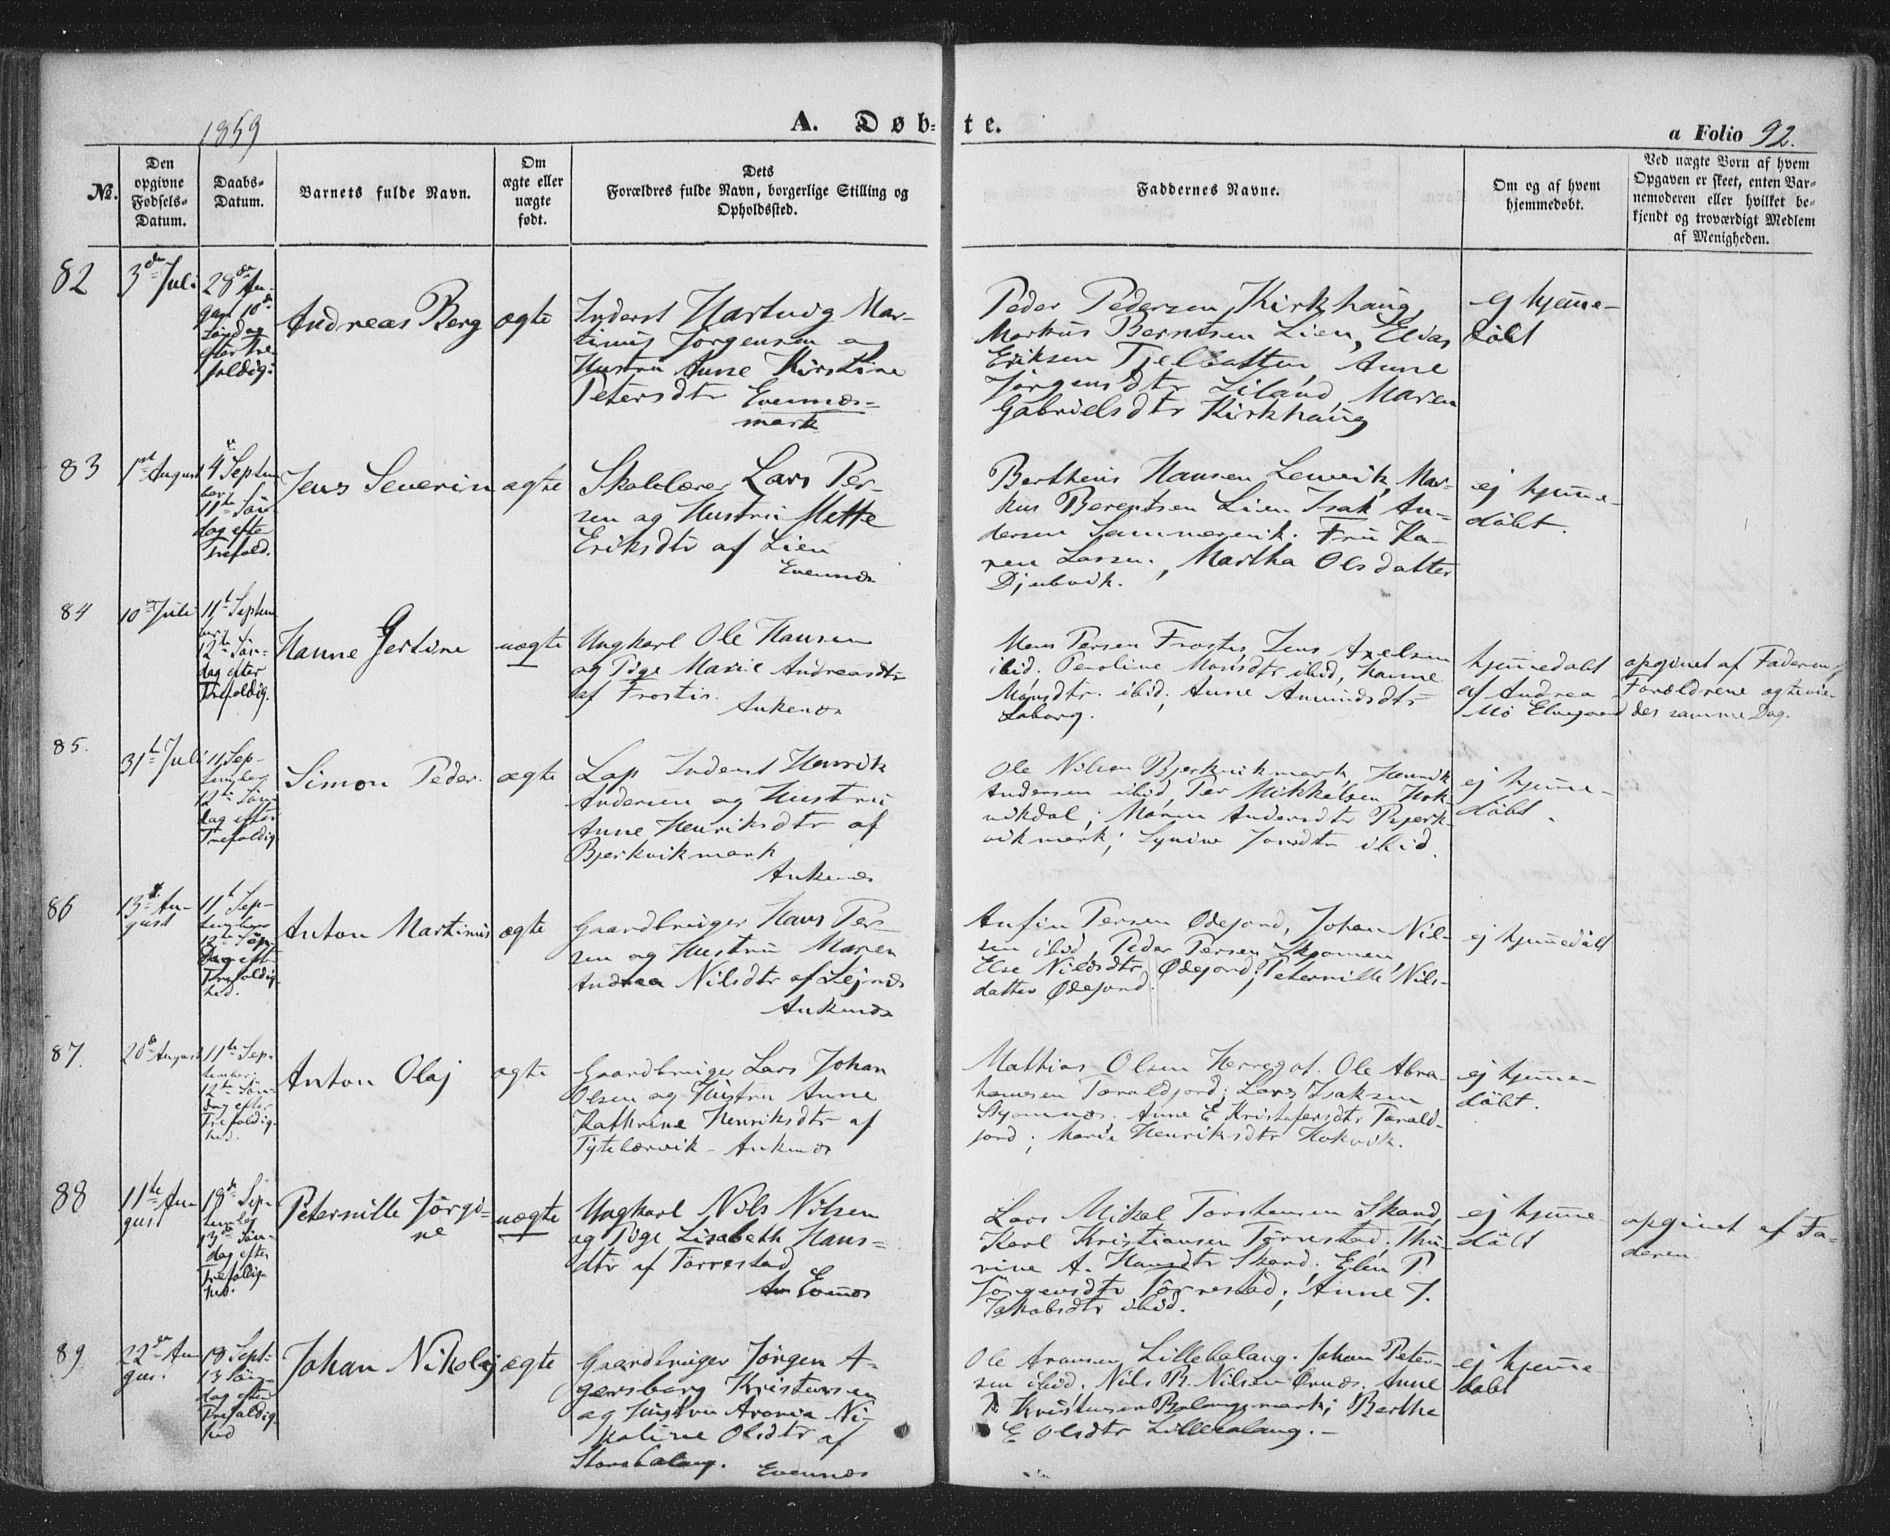 1859
A. Døbte.
a Folio 92.
No.
Den opgivne Fødsels-Datum.
Daabs-Datum.
Barnets fulde Navn.
Om ægte eller uægte født.
Dets Forældres fulde Navn, borgerlige Stilling og Opholdssted.
Faddernes Navne.
Om og af hvem hjemmedøbt.
Ved uægte Børn af hvem Opgaven er skeet, enten Barnemoderen eller hvilket bekjendt og troværdigt Medlem af Menigheden.
82
3die Juli
28de August 10de Søndag efter Trefoldig:
Andreas Berg
ægte
Inderst Hartvig Mar-
tinus Jørgensen og
Hustru Anne Kirstine
Petersdtr Evenæs-
mark
Peder Pedersen Kirkhaug,
Markus Berntsen Lien, Elias
Eriksen Tjelbotten, Anne
Jørgensdtr Liland, Maren
Gabrielsdtr Kirkhaug
ej hjemme-
døbt
83
1st August
4 September 11te Søndag efte Trefold.
Jens Severin
ægte
Skolelærer Lars Per-
sen og Hustru Mette
Eriksdtr af Lien
Evennæs
Bertheus Hansen Lenvik, Mar-
kus Berentsen Lien Isak An-
dersen Sammervik. Fru Ka-
ren Lassen, Martha Olsdatter
Djubvik.
ej hjemme-
døbt.
84
10 Juli
11te September 12te Søndag efter Trefoldig.
Hanne Gertine
uægte
Ungkarl Ole Hansen
og Pige Marie Andreasdtr
af Frostis.
Ankenæs
Mons Persen Frostis, Jens Axelsen
ibid; Peroline Monsdtr ibid, Hanne
Monsdtr. ibid; Anne Amundsdtr
Laberg.
hjemmedøbt
af Andrea
Mö Elvegaard
opgivet af Faderen,
Forældrene ægtevie-
des samme Dag.
85.
31te Juli
11 September 12te Søndag efter Trefoldig
Simon Peder.
ægte
Lap Inderst Henrik
Andersen og Hustru
Anne Henriksdtr af
Bjerkvikmark
Ankenæs
Ole Nilsen Bjerkvikmark, Henrik
Andersen ibid, Per Mikkelsen Hok-
vikdal; Maren Andersdtr Bjerk-
vikmark; ibid.
ej hjemme-
døbt.
86
13de August
11te September 12te Søndag eftr Trefoldighed.
Anton Martinus
ægte
Gaardbruger Hans Per-
sen og Hustru Maren
Andrea Nilsdtr af Lejnes
Ankenæs
Anfin Persen Ødejord, Johan Nil-
sen ibid, Peder Persen Skjomen,
Else Nilsdtr Ødejord; Peternille Nils-
datter Ødejord.
ej hjemmedøbt
87.
20de August
11te September 12te Søndag efter Trefoldighed.
Anton Olaj
ægte
Gaardbruger Lars Johan
Olsen og Hustru Anne
Kathrine Henriksdtr af
Tytebærvik - Ankenæs
Mathias Olsen Herregot. Ole Abra-
hamsen Taraldjord; Lars Isaksen
Skjomnæs. Anne E Kristofersdtr Tarald-
jord; Marie Henriksdtr Hokvik.
ej hjemme-
døbt.
88
11te August
18de September 13de Søndag efter Trefoldighed.
Peternille Jørgi-
ne
uægte
Ungkarl Nils Nilsen
og Pige Lisabeth Hans-
dtr af Tørrestad
Evenæs
Lars Mikal Torstensen Skard,
Karl Kristiansen Tørrestad. Thu-
rine A. Hansdtr Skard. Elen P.
Jørgensdtr Tørrestad; Anne J.
Jakobsdtr ibid.
ej hjemme-
døbt
opgivet af Fa-
deren
89
22de August.
18 Sept. 13 Søndag efter Trefoldighed
Johan Nikolaj
ægte
Gaardbruger Jørgen A-
gersborg Kristensen
og Hustru Aronia Ni-
koline Olsdtr af
Storebalang.
Evennæs
Ole Aronsen Lillebalang. Johan Peter-
sen ibid. Nils B. Nilsen Ørnæs. Anne
Kristensen Balangsmark; Berthe
E Olsdtr Lillebalang.-
ej hjemme
døbt